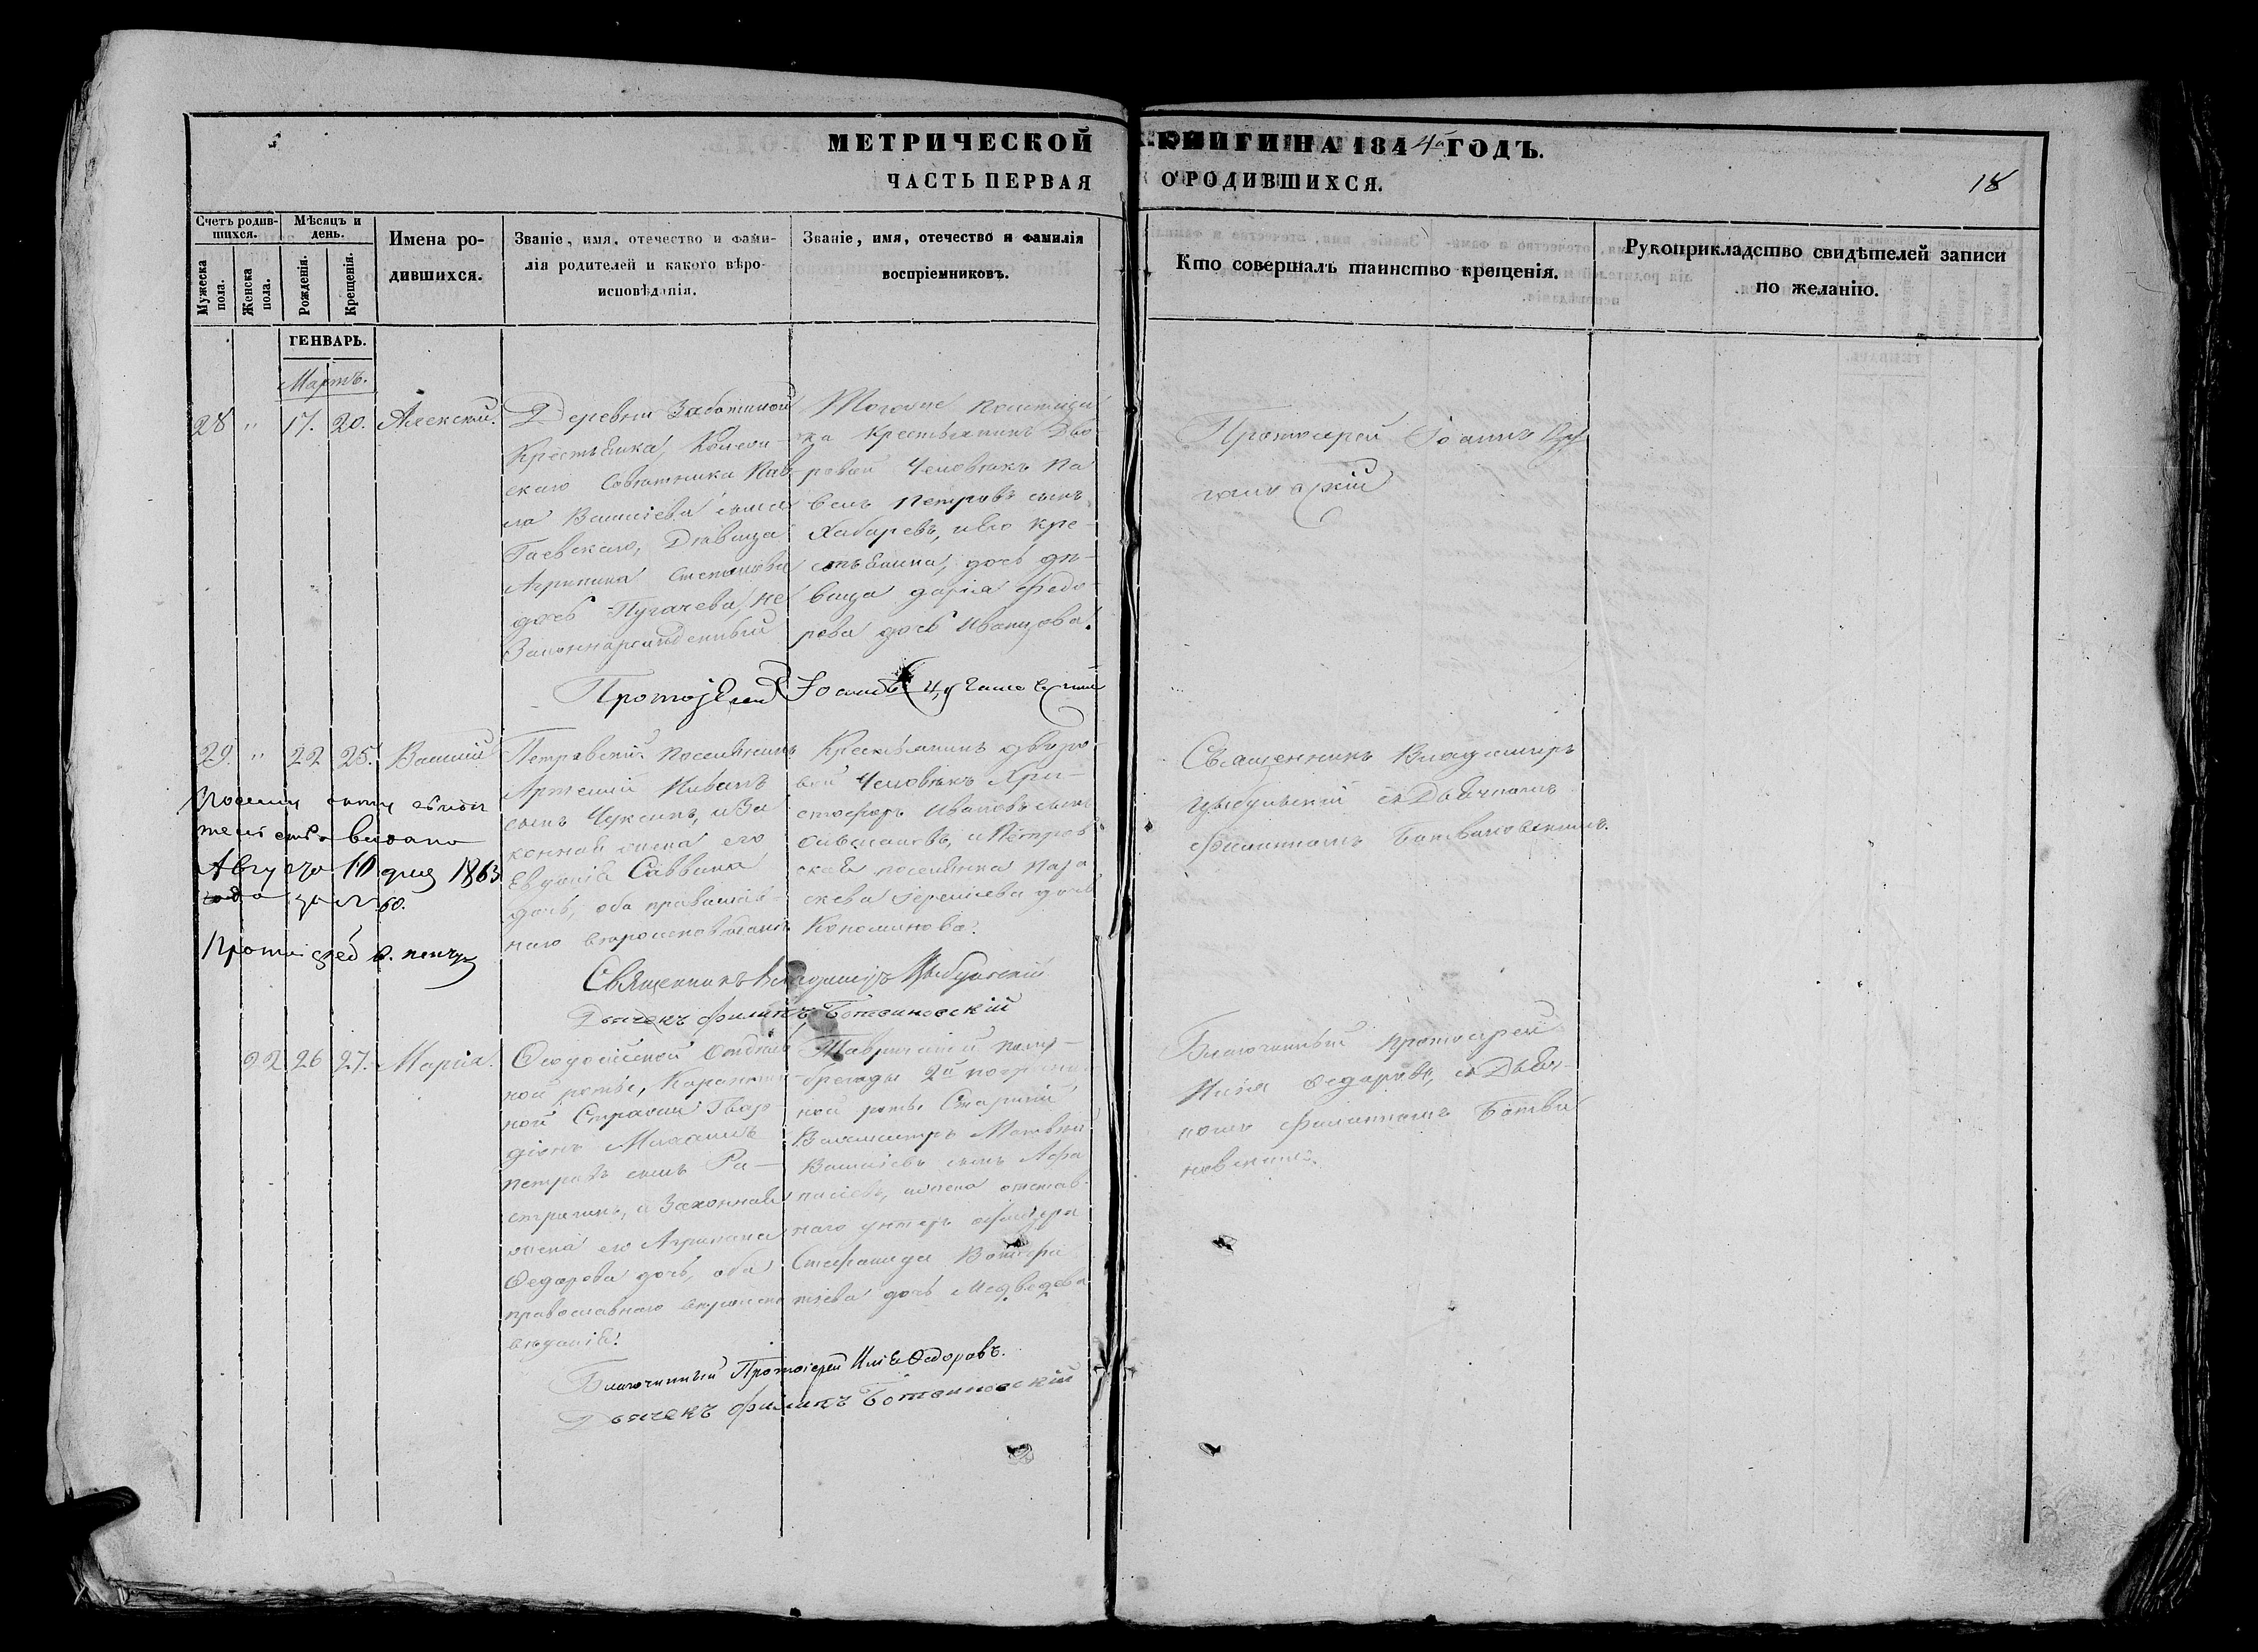 МЕТРИЧЕСКОЙ КНИГИ НА 1844й ГОДЪ.
ЧАСТЬ ПЕРВАЯ О РОДИВШИХСЯ.
18
Счетъ родив-
шихся.
Мужеска
пола.
Женска
пола.
Мѣсяцъ и
день.
Рожденія.
Крещенія.
Имена ро-
дившихся.
Званіе, имя, отечество и фами-
лія родителей и какого вѣро-
исповѣданія.
Званіе, имя, отечество и фамилія
воспріемниковъ.
Кто совершалъ таинство крещенія.
Рукоприкладство свидѣтелей записи
по желанію.
ГЕНВАРЬ.
Мартъ.
28 " 17. 20. Алексѣй.
Деревни
Крестьянка, Колеж-
скаго Совѣтника Пав-
ла Васильева сына
Гаевскаго, Дѣвица
Агрипина Степанова
дочь Пугачева, не
Законнорожденный
крестьянинъ Дво-
ровой Человѣкъ Па
велъ Петровъ сынъ
Хабаровъ, и Его кре-
стьянка, дочь дѣ-
вица Дарія Федо-
рова дочь Иванцова.
Протоіерей Іоаннъ
Протоіерей Іоаннъ
29. " 22 25. Василій
Петровскій Поселянинъ
Артемій Ивановъ
сынъ Чуксинъ, и За
конная жена его
Евдокія Саввина
дочь, оба православ-
наго вѣроисповѣданія
Крестьянинъ дворо-
вой Человѣкъ Хри-
стофоръ Ивановъ сынъ
и Петров
ская поселянка Пара
скева Еремѣева дочь
Кономинова.
Священникъ Владимиръ
Цыбульскій съ Дьячкомъ
Филиппомъ Ботвиновскимъ.
выдано
Августа 10 дня 1863
года за № 60.
Священникъ Владимиръ Цыбульскій
Дьячекъ Филиппъ Ботвиновскій
22 26 27. Марія.
Ѳеодосійской
ной роты, Карантин
ной Стражи Гвар-
діонъ Михаилъ
Петровъ сынъ Ра-
стригинъ, и Законная
жена его Агрипина
Ѳедорова дочь, оба
православнаго вѣроиспо
вѣданія.
Таврической погр-
бригады 2й погранич
ной роты Старшій
Вахмистръ Матвѣй
Васильевъ сынъ Афа
насіевъ, и жена отстав-
наго унтеръ офицера
Стефанида
тіева дочь Медведева
Благочинный протоіерей
Илія Ѳедоровъ, съ Дьяч-
комъ Филиппомъ Ботви
новскимъ.
Благочинный Протоіерей Илія Ѳедоровъ.
Дьячекъ Филиппъ Ботвиновскій